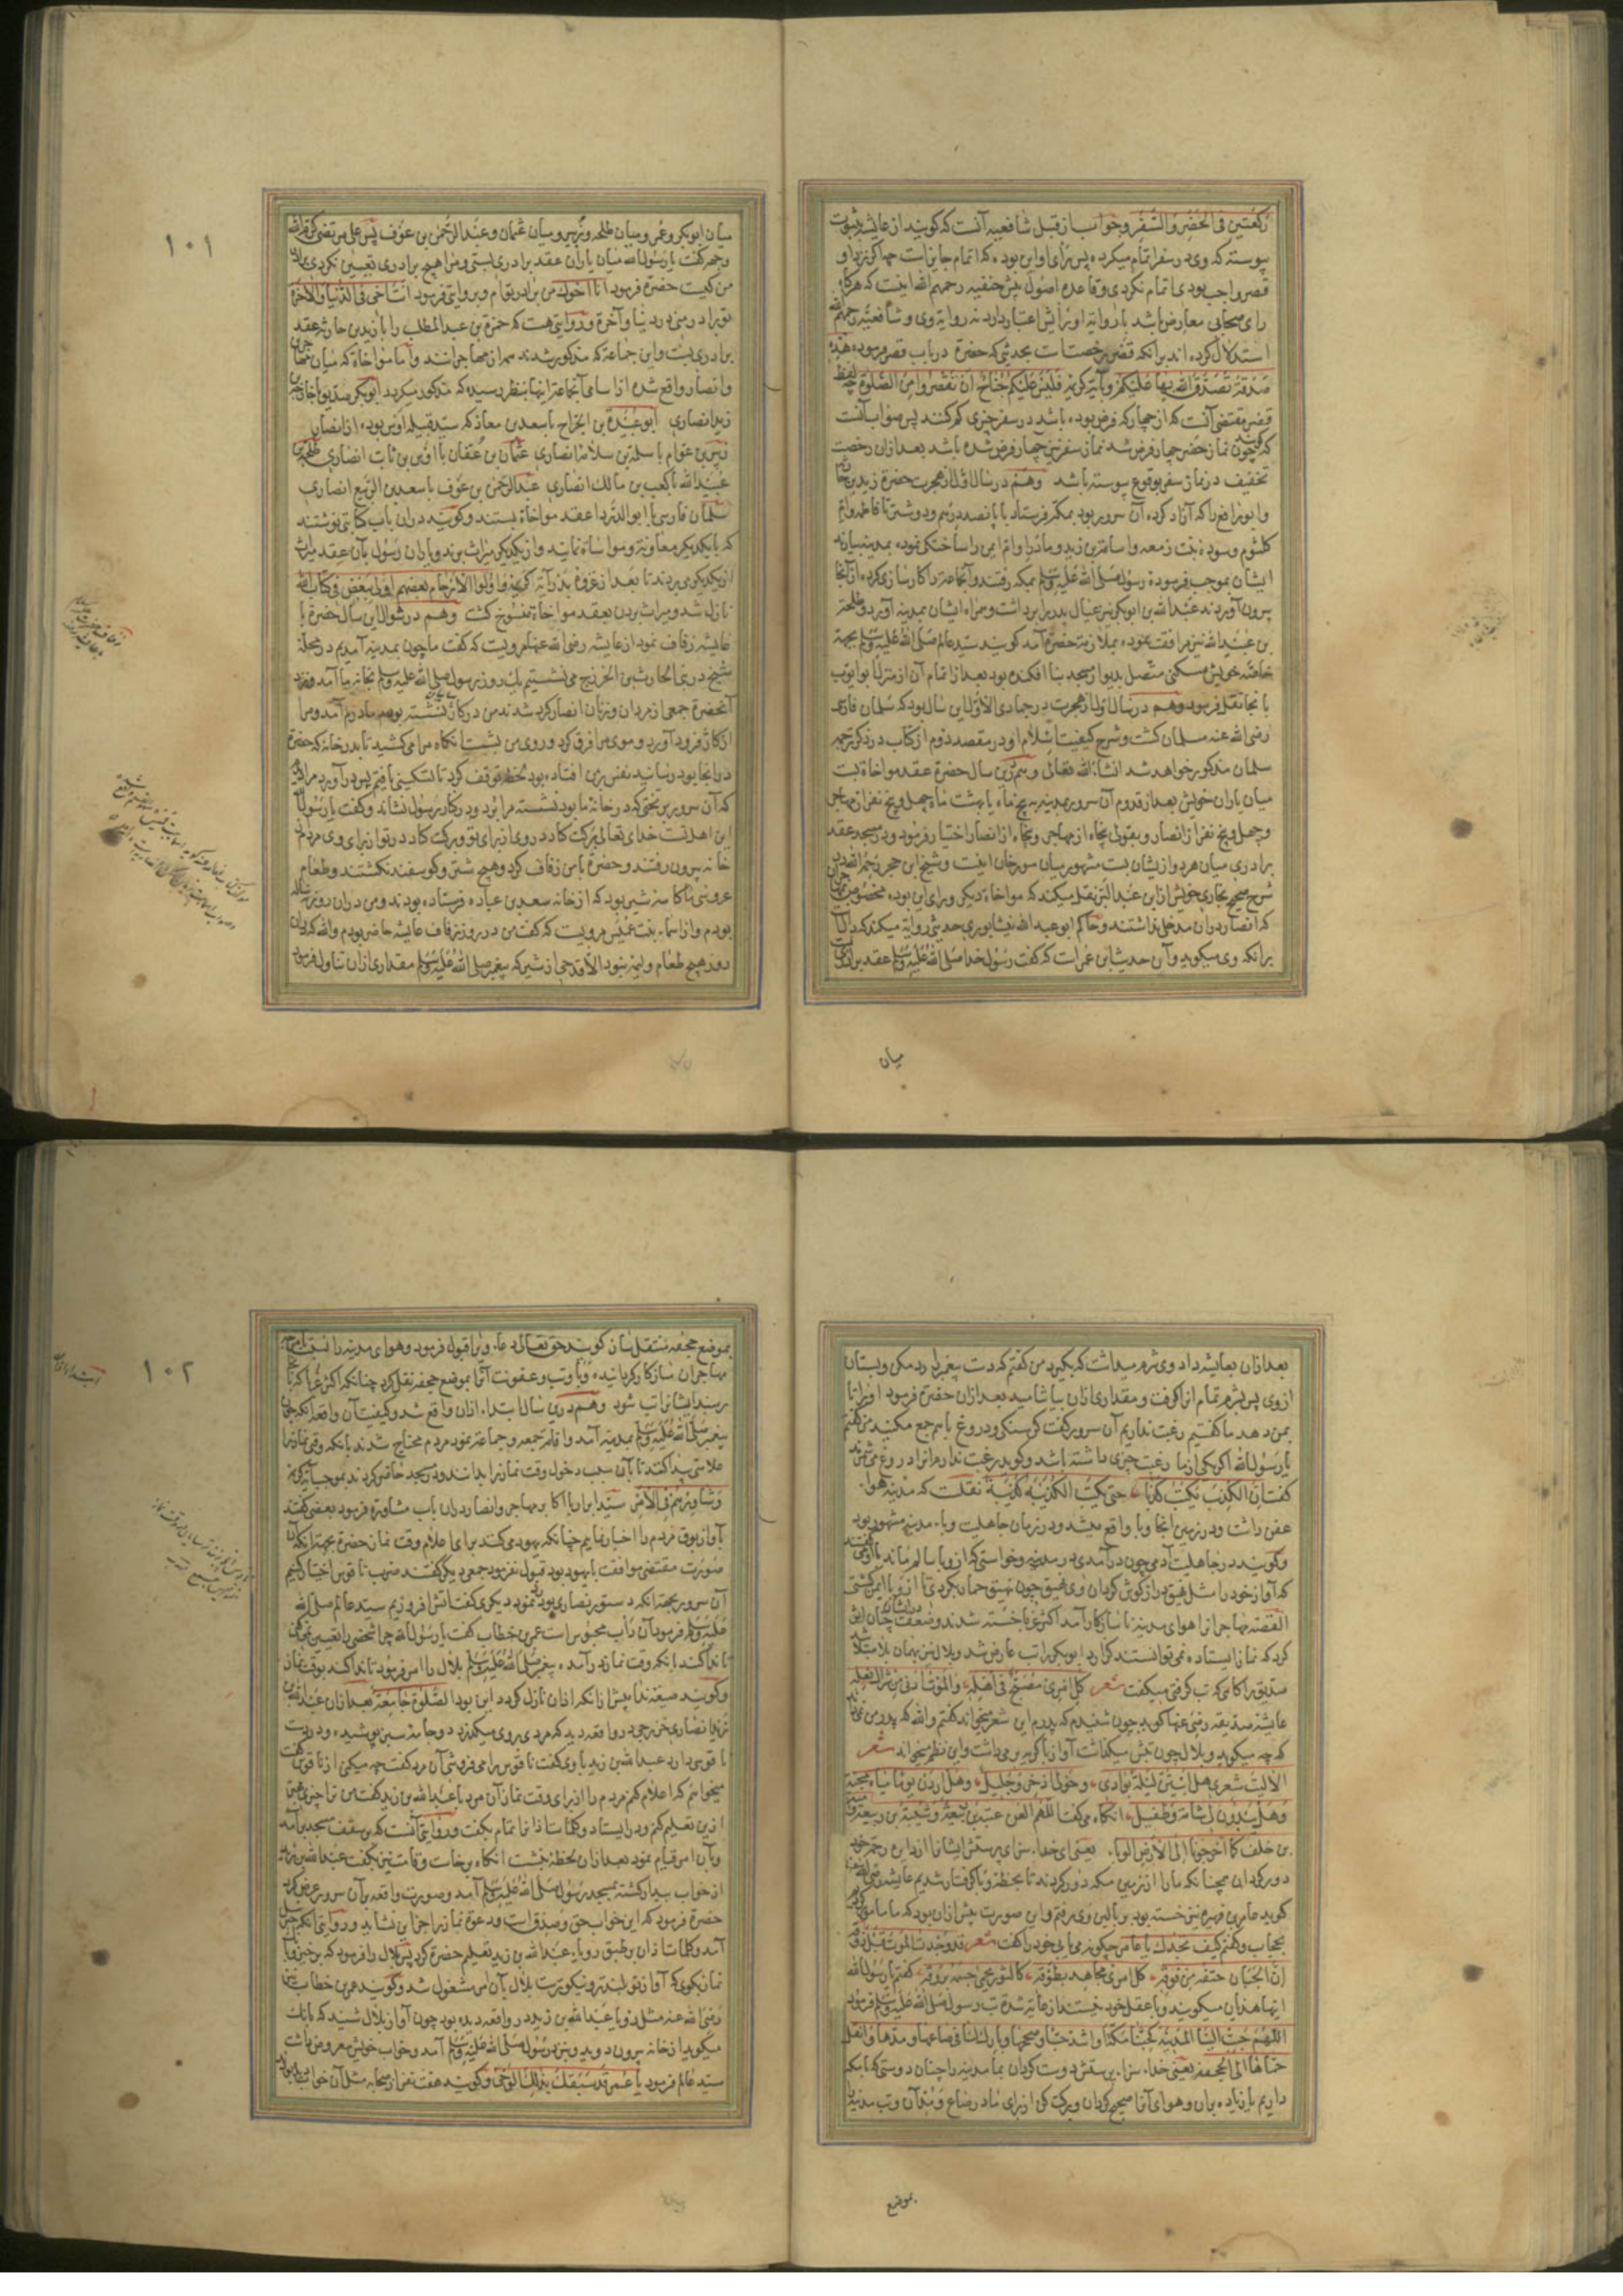 ركعتين فی الحضر والسفر وجواب از قبل شافعیه آنست که گویند از عایشه بثبوت
پیوسته که وی در سفر اتمام میکرده پس برای او این بوده که اتمام جایز است چه اگر نزد او
قصر واجب بودی اتمام نکردی وقاعده اصول پیش حنفیه رحمهم الله اینست که هرگاه
رای صحابی معارض باشد با روایة او برایش اعتبار دارد نه روایة وی وشافعیه رحمهم الله
استدلال کرده اند برانکه قصر رخصت است بحدیثی که حضرة در باب قصر فرموده هذه
صدقة تصدق الله بها علیکم وبآیة کریمه فلیس علیکم جناح ان تقصروا من الصلوة چه لفظ
قصر مقتضی آنست که از چهار که فرض بوده باشد در سفر چیزی کم کنند پس صواب آنست
که گویند چون نماز حضر چهار فرض شد نماز سفر نیز چهار فرض شده باشد بعد ازان رخصت
تخفیف در نماز سفر بوقوع پیوسته باشد وهم در سال اول از هجرت حضرة زید بن حارثه
وابورافع را که آزاد کرده آن سرور بود بمکه فرستاد با پانصد درهم ودو شتر تا فاطمه وام
کلثوم وسوده بنت زمعه واسامة بن زید ومادر او ام ایمن را ساختگی نموده بمدینه بیارند
ایشان بموجب فرموده رسول صلی الله علیه وسلم بمکه رفتند وآنجماعة را کارسازی کرده از آنجا
بیرون آوردند عبد الله بن ابوبکر نیز عیال پدر برداشت وهمراه ایشان بمدینه آورد وطلحة
بن عبید الله نیز مرافقت نموده بملازمة حضرة آمد گویند سید عالم صلی الله علیه وسلم بجهة
خاصه خویش مسکنی متصل بدیوار مسجد بنا افکنده بود بعد از اتمام آن از منزل ابو ایوب
بانجا نقل فرمود وهم در سال اول از هجرت در جمادی الاول این سال بود که سلمان فارسی
رضی الله عنه مسلمان گشت وشرح کیفیت اسلام او در مقصد دوم از کتاب در ذکر ترجمه
سلمان مذکور خواهد شد انشاء الله تعالی وهم درین سال حضرة عقد مواخاة بست
میان یاران خویش بعد از قدوم آن سرور بمدینه به پنج ماه یا بهشت ماه چهل وپنج نفر از مهاجر
وچهل وپنج نفر از انصار وبقولی پنجاه از مهاجر وپنجاه از انصار اختیار فرمود ودر مسجد عقد
برادری میان هر دو از یشان بست مشهور میان مورخان اینست وشیخ ابن حجر رحمه الله در
شرح صحیح بخاری خویش از ابن عبد البر نقل میکند که مواخاة دیگر ورای این بوده مخصوص مهاجران
که انصار در ان مدخل نداشتند وحاکم ابو عبد الله نیشابوری حدیثی روایة میکند که دلالت
برانکه وی میگوید وآن حدیث ابن عمر است که گفت رسول خدا صلی الله علیه وسلم عقد برادری
میان
١٠١
میان ابوبکر وعمر ومیان طلحه وزبیر ومیان عثمان وعبد الرحمن بن عوف پس علی مرتضی کرم الله
وجهه گفت یا رسول الله میان یاران عقد برادری بستی ومرا هیچ برادری تعیین نکردی برادر
من کیست حضرة فرمود انا اخوك من برادر توام وبروایتی فرمود انت اخی فی الدنیا والآخرة
تو برادر منی در دنیا وآخرة وروایتی هست که حمزة بن عبد المطلب را با زید بن حارثه عقد
برادری بست واین جماعة که مذکور شدند همه از مهاجرانند واما مواخاة که میان مهاجران
وانصار واقع شده از اسامی آنجماعة اینها بنظر رسیده که مذکور میگردد ابوبکر صدیق با خارجه بن
زید انصاری ابو عبیدة بن الجراح با سعد بن معاذ که سید قبیله اوس بوده از انصار
زبیر بن عوام با سلمة بن سلامة انصاری عثمان بن عفان با اوس بن ثابت انصاری طلحه بن
عبید الله با کعب بن مالك انصاری عبد الرحمن بن عوف با سعد بن الربیع انصاری
سلمان فارسی با ابو الدرداء عقد مواخاة بستند وگویند دران باب کتابتی نوشتند
که بایکدیگر معاونة ومواساة نمایند واز یکدیگر میراث برند ویاران رسول بآن عقد میراث
از یکدیگر می بردند تا بعد از غزوة بدر آیة کریمه واولوا الارحام بعضهم اولی ببعض فی کتاب الله
نازل شد ومیراث بردن بعقد مواخاة منسوخ گشت وهم در شوال این سال حضرة با
عایشه زفاف نمود از عایشه رضی الله عنها مرویست که گفت ما چون بمدینه آمدیم در محله
شیخ در بنی الحارث بن الخزرج می نشستیم یك روز رسول صلی الله علیه وسلم بخانه ما آمد ونزد
آنحضرة جمعی از مردان وزنان انصار گرد شدند من در کناری نشسته بودم مادرم آمد ومرا
از کنار فرود آورد وموی مرا فرق کرد وروی من بشست انگاه مرا می کشید تا بدر خانه که حضرة
در انجا بود رسانید نفس من افتاده بود لحظه توقف کرد تا تسکینی یافتم پس در آورد مرا دیدم
که آن سرور بر تختی که در خانه ما بود نشسته مرا برد ودر کنار رسول نشاند وگفت یا رسول الله
این اهل تست خدای تعالی برکت کناد در وی از برای تو وبرکت کناد در تو از برای وی مردم از
خانه بیرون رفتند وحضرة با من زفاف کرد وهیچ شتر وگوسفند نکشتند وطعام
عروسی ما کاسه شیر بود که از خانه سعد بن عباده فرستاده بودند ومن دران روز نه ساله
بودم واز اسماء بنت عمیس مرویست که گفت من در روز زفاف عایشه حاضر بودم والله که دران
روز هیچ طعام ولیمه نبود الا قدحی از شیر که پیغمبر صلی الله علیه وسلم مقداری ازان تناول فرمود
بعد ازان بعایشه داد وی شرم میداشت که بگیرد من گفتم که دست پیغمبر را رد مکن وبستان
از وی پس بشرم تمام از او گرفت ومقداری ازان بیاشامید بعد ازان حضرة فرمود او را تا
بمن دهد ما گفتیم رغبت نداریم آن سرور گفت گرسنگی ودروغ باهم جمع مکنید من گفتم
یا رسول الله اگر یکی از ما رغبت چیزی داشته باشد وگوید رغبت ندارم انرا دروغ می شمرند
گفت ان الکذب یکتب کذبا حتی یکتب الکذیبة کذیبة نقلست که مدینه هوا
عفن داشت ودر زمین انجا وبا واقع میشد ودر زمان جاهلیت وباء مدینه مشهور بود
وگویند در جاهلیت آدمی چون در آمدی در مدینه وخواستی که از وبا سالم ماند با او می گفتند
که آواز خود را مثل نهیق دراز گوش گردان وی نهیق چون نهیق حمار بکردی تا از وبا ایمن گشتی
القصه مهاجرانرا هوای مدینه ناسازگار آمد اکثر غربا خسته شدند وضعف در ایشان چنان اثر
کرد که نماز ایستاده نمی توانستند گزارد ابوبکر را تب عارض شد وبلال نیز بهمان بلا مبتلا شد
صدیق را گاهی که تب گرفتی میگفت شعر کل امرئ مصبح فی اهله والموت ادنی من شراك نعله
عایشه صدیقه رضی عنها گوید چون شنیدم که پدرم این شعر میخواند گفتم والله که پدر من نمی داند
که چه میگوید وبلال چون تبش میگذاشت آواز با گریه بر می داشت واین نظم میخواند شعر
الا لیت شعری هل ابیتن لیلة بوادی وحولی اذخر وجلیل وهل اردن یوما میاه مجنة
وهل یبدون لی شامة وطفیل انگاه می گفت اللهم العن عتبة بن ربیعة وشیبة بن ربیعة وامیة
بن خلف کما اخرجونا الی الارض الوباء یعنی ای خداء سزای پرستش ایشانرا از دایره رحم خود
دور گردان همچنانکه ما را از زمین مکه دور کردند تا بحظیره وبا گرفتار شدیم عایشه رضی الله عنها
گوید عامر بن فهیره نیز خسته بود بر بالین وی رفتم واین صورت پیش ازان بود که ما مامور گردیم
بحجاب وگفتم کیف تجدك یا عامر چگونه می یابی خود را گفت شعر قد وجدت الموت قبل ذوقه
ان الجبان حتفه من فوقه کل امرئ مجاهد بطوقه کالثور یحمی جسمه بروقه گفتم یا رسول الله
اینها هذیان میگویند وبا عقل خود نیستند از غایة شدة تب رسول صلی الله علیه وسلم فرمود
اللهم حبب الینا المدینة کحبنا مکة او اشد حبا وصححها وبارك لنا فی صاعها ومدها وانقل
حماها الی الجحفه یعنی خداء سزاء پرستش دوست گردان بما مدینه را چنان دوستی که بمکه
داریم یا زیاده بران وهوای آنرا صحیح گردان وبرکت کن از برای ما در صاع ومد آن وتب مدینه را
بموضع
١٠٢
بموضع جحفه منتقل ساز گویند حق تعالی دعاء ویرا قبول فرمود وهوای مدینه را نسبت با مزاج
مهاجران سازگار گردانید ووبا وتب وعفونت آنرا بموضع جحفه نقل کرد چنانکه اکثر غربا که بانجا
برسند ایشانرا تب شود وهم درین سال ابتداء اذان واقع شد وکیفیت آن واقعه انکه چون
پیغمبر صلی الله علیه وسلم بمدینه آمد واقامة جمعه وجماعة نمود مردم محتاج شدند بانکه وقت نماز را
علامتی پیدا کنند تا بآن سبب دخول وقت نماز را بدانند ودر مسجد حاضر گردند بموجب آیة کریمه
وشاورهم فی الامر سید ابرار با اکابر مهاجر وانصار دران باب مشاورة فرمود بعضی گفتند
بآواز بوق مردم را اخبار نمایم چنانکه یهود می کنند برای اعلام وقت نماز حضرة بجهة انکه آن
صورت مقتضی موافقت با یهود بود قبول نفرمود جمعی دیگر گفتند ضرب ناقوس اختیار کنیم
آن سرور بجهة انکه دستور نصاری بود رد نمود دیگری گفت آتش افروزیم سید عالم صلی الله
علیه وسلم فرمود آن داب مجوس است عمر بن خطاب گفت یا رسول الله چرا شخصی را تعیین نمی کنی
تا ندا کند بانکه وقت نماز در آمده پیغمبر صلی الله علیه وسلم بلال را امر فرمود تا ندا کند بوقت نماز
وگویند صیغه ندا پیش از انکه اذان نازل گردد این بود الصلوة جامعة بعد ازان عبد الله بن
زید انصاری خزرجی در واقعه دید که مردی بر وی میگذرد وجامه سبز پوشیده ودر دست
ناقوسی دارد عبد الله بن زید با وی گفت ناقوس را می فروشی آن مرد گفت چه میکنی از ناقوس گفت
میخواهم که اعلام کنم مردم را از برای وقت نماز آن مرد با عبد الله بن زید گفت من ترا چیزی بهتر
ازین تعلیم کنم ودر ایستاد وکلمات اذان تمام بگفت وروایتی آنست که بر سقف مسجد بر آمد
وبآن امر قیام نمود بعد ازان لحظه بنشست انگاه برخاست واقامت نیز بگفت عبد الله بن زید
از خواب بیدار گشته بمسجد رسول صلی الله علیه وسلم آمد وصورت واقعه بر آن سرور عرض کرد
حضرة فرمود که این خواب حق وصدق است ودعوة نماز را جز این نشاید وروایتی انکه جبرئیل
آمد وکلمات اذان بر طبق رویاء عبد الله بن زید تعلیم حضرة کرد پس بلال را فرمود که برخیز وبانگ
نماز بگوی که آواز تو بلندتر ونیکوترست بلال بآن امر مشغول شد وگویند عمر بن خطاب نیز
رضی الله عنه مثل رویاء عبد الله بن زید در واقعه دیده بود چون آواز بلال شنید که بانك
میگوید از خانه بیرون دوید وپیش رسول صلی الله علیه وسلم آمد وخواب خویش معروض داشت
سید عالم فرمود یا عمر قد سبقك بذلك الوحی وگویند هفت نفر از صحابه مثل آن خواب دیده بودند